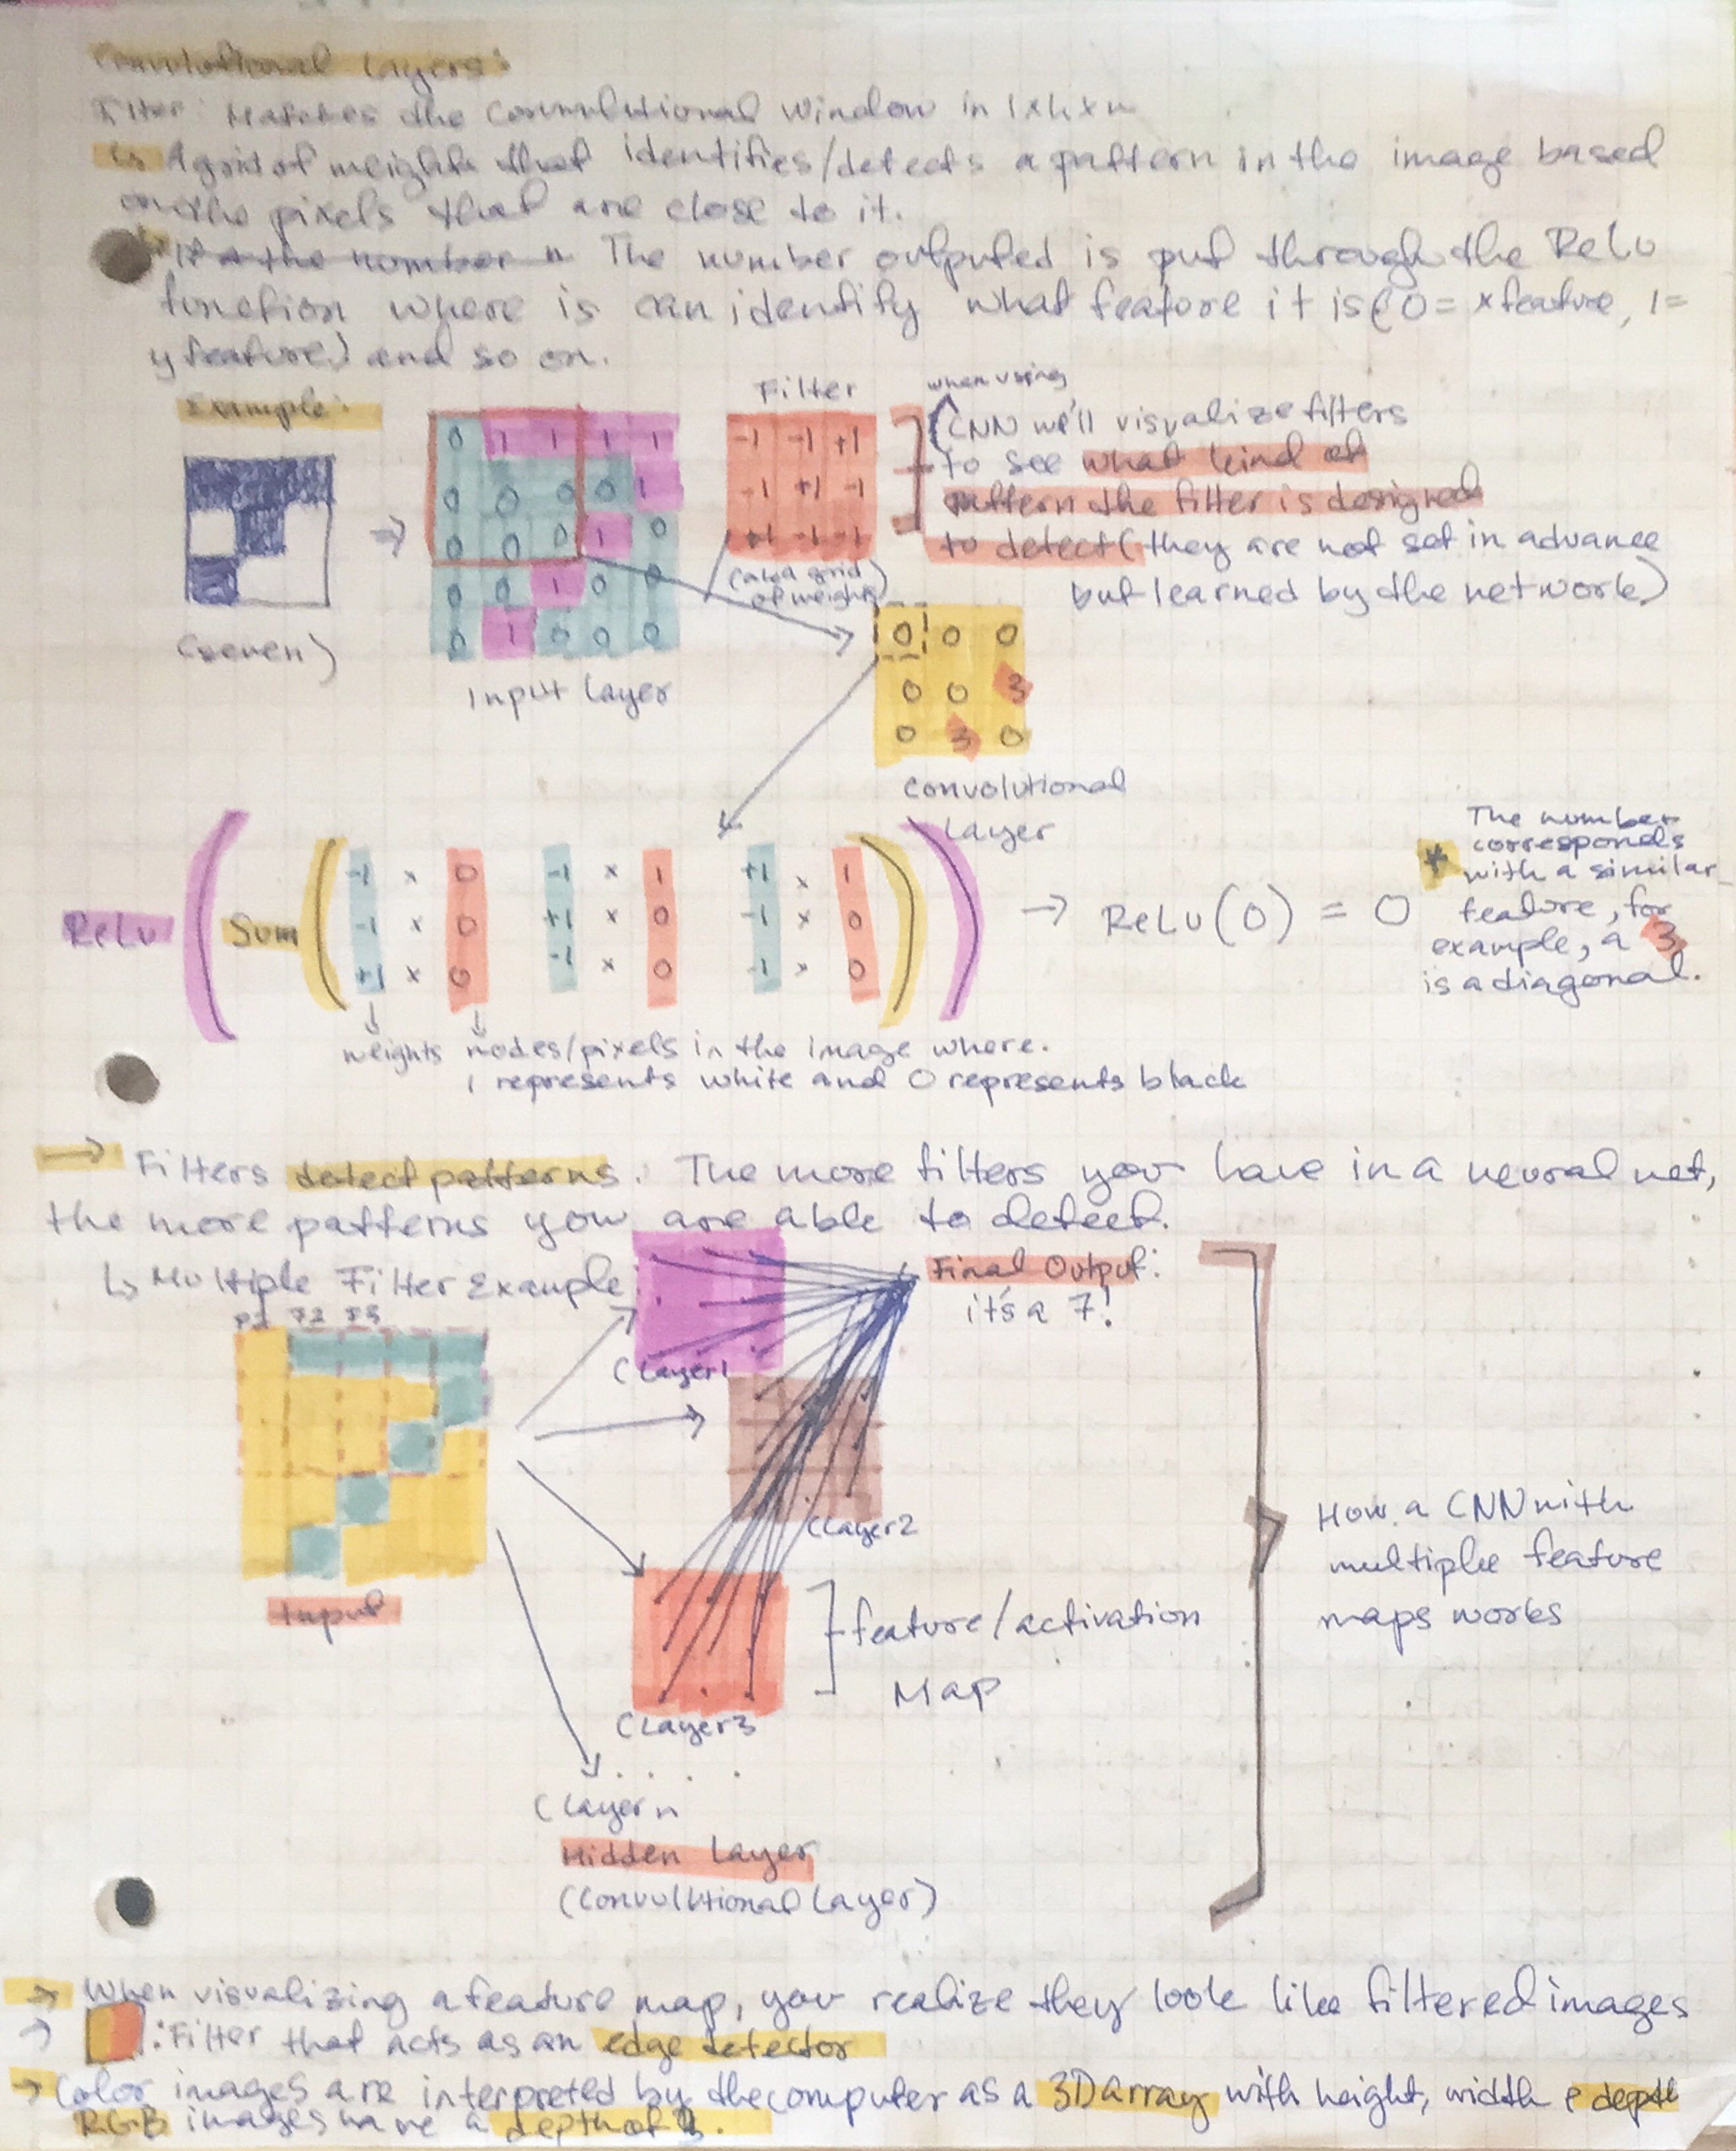 Convolutional Layers:
Filter: Matches the Convolutional Window in 1xhxw
↳ A grid of weights that identifies/detects a pattern in the image based
on the pixels that are close to it.
The number outputed is put through the ReLu
function where is can identify what feature it is (0 = x feature, 1 =
y feature) and so on.
Example:
(seven)
0 1 1 1 1
0 0 0 0 1
0 0 0 1 0
0 0 1 0 0
0 1 0 0 0
Input Layer
Filter
-1 -1 +1
-1 +1 -1
+1 -1 -1
(aka grid
of weights)
when using
CNN we'll visualize filters
to see what kind of
pattern the filter is designed
to detect (they are not set in advance
but learned by the network)
0 0 0
0 0 3
0 3 0
Convolutional
Layer
ReLu ( Sum (
-1 x 0 -1 x 1 +1 x 1
-1 x 0 +1 x 0 -1 x 0
+1 x 0 -1 x 0 -1 x 0
) ) → ReLu(0) = 0
* The number
corresponds
with a similar
feature, for
example, a 3
is a diagonal.
weights nodes/pixels in the image where.
1 represents white and 0 represents black
→ Filters detect patterns. The more filters you have in a neural net,
the more patterns you are able to detect.
↳ Multiple Filter Example
F1 F2 F3
Input
CLayer1
CLayer2
CLayer3
. . . .
CLayer n
Hidden Layer
(Convulutional Layer)
Final Output:
it's a 7!
feature/activation
Map
How a CNN with
multiple feature
maps works
→ When visualizing a feature map, you realize they look like filtered images
→ : Filter that acts as an edge detector
→ Color images are interpreted by the computer as a 3D array with height, width & depth
RGB images have a depth of 3.